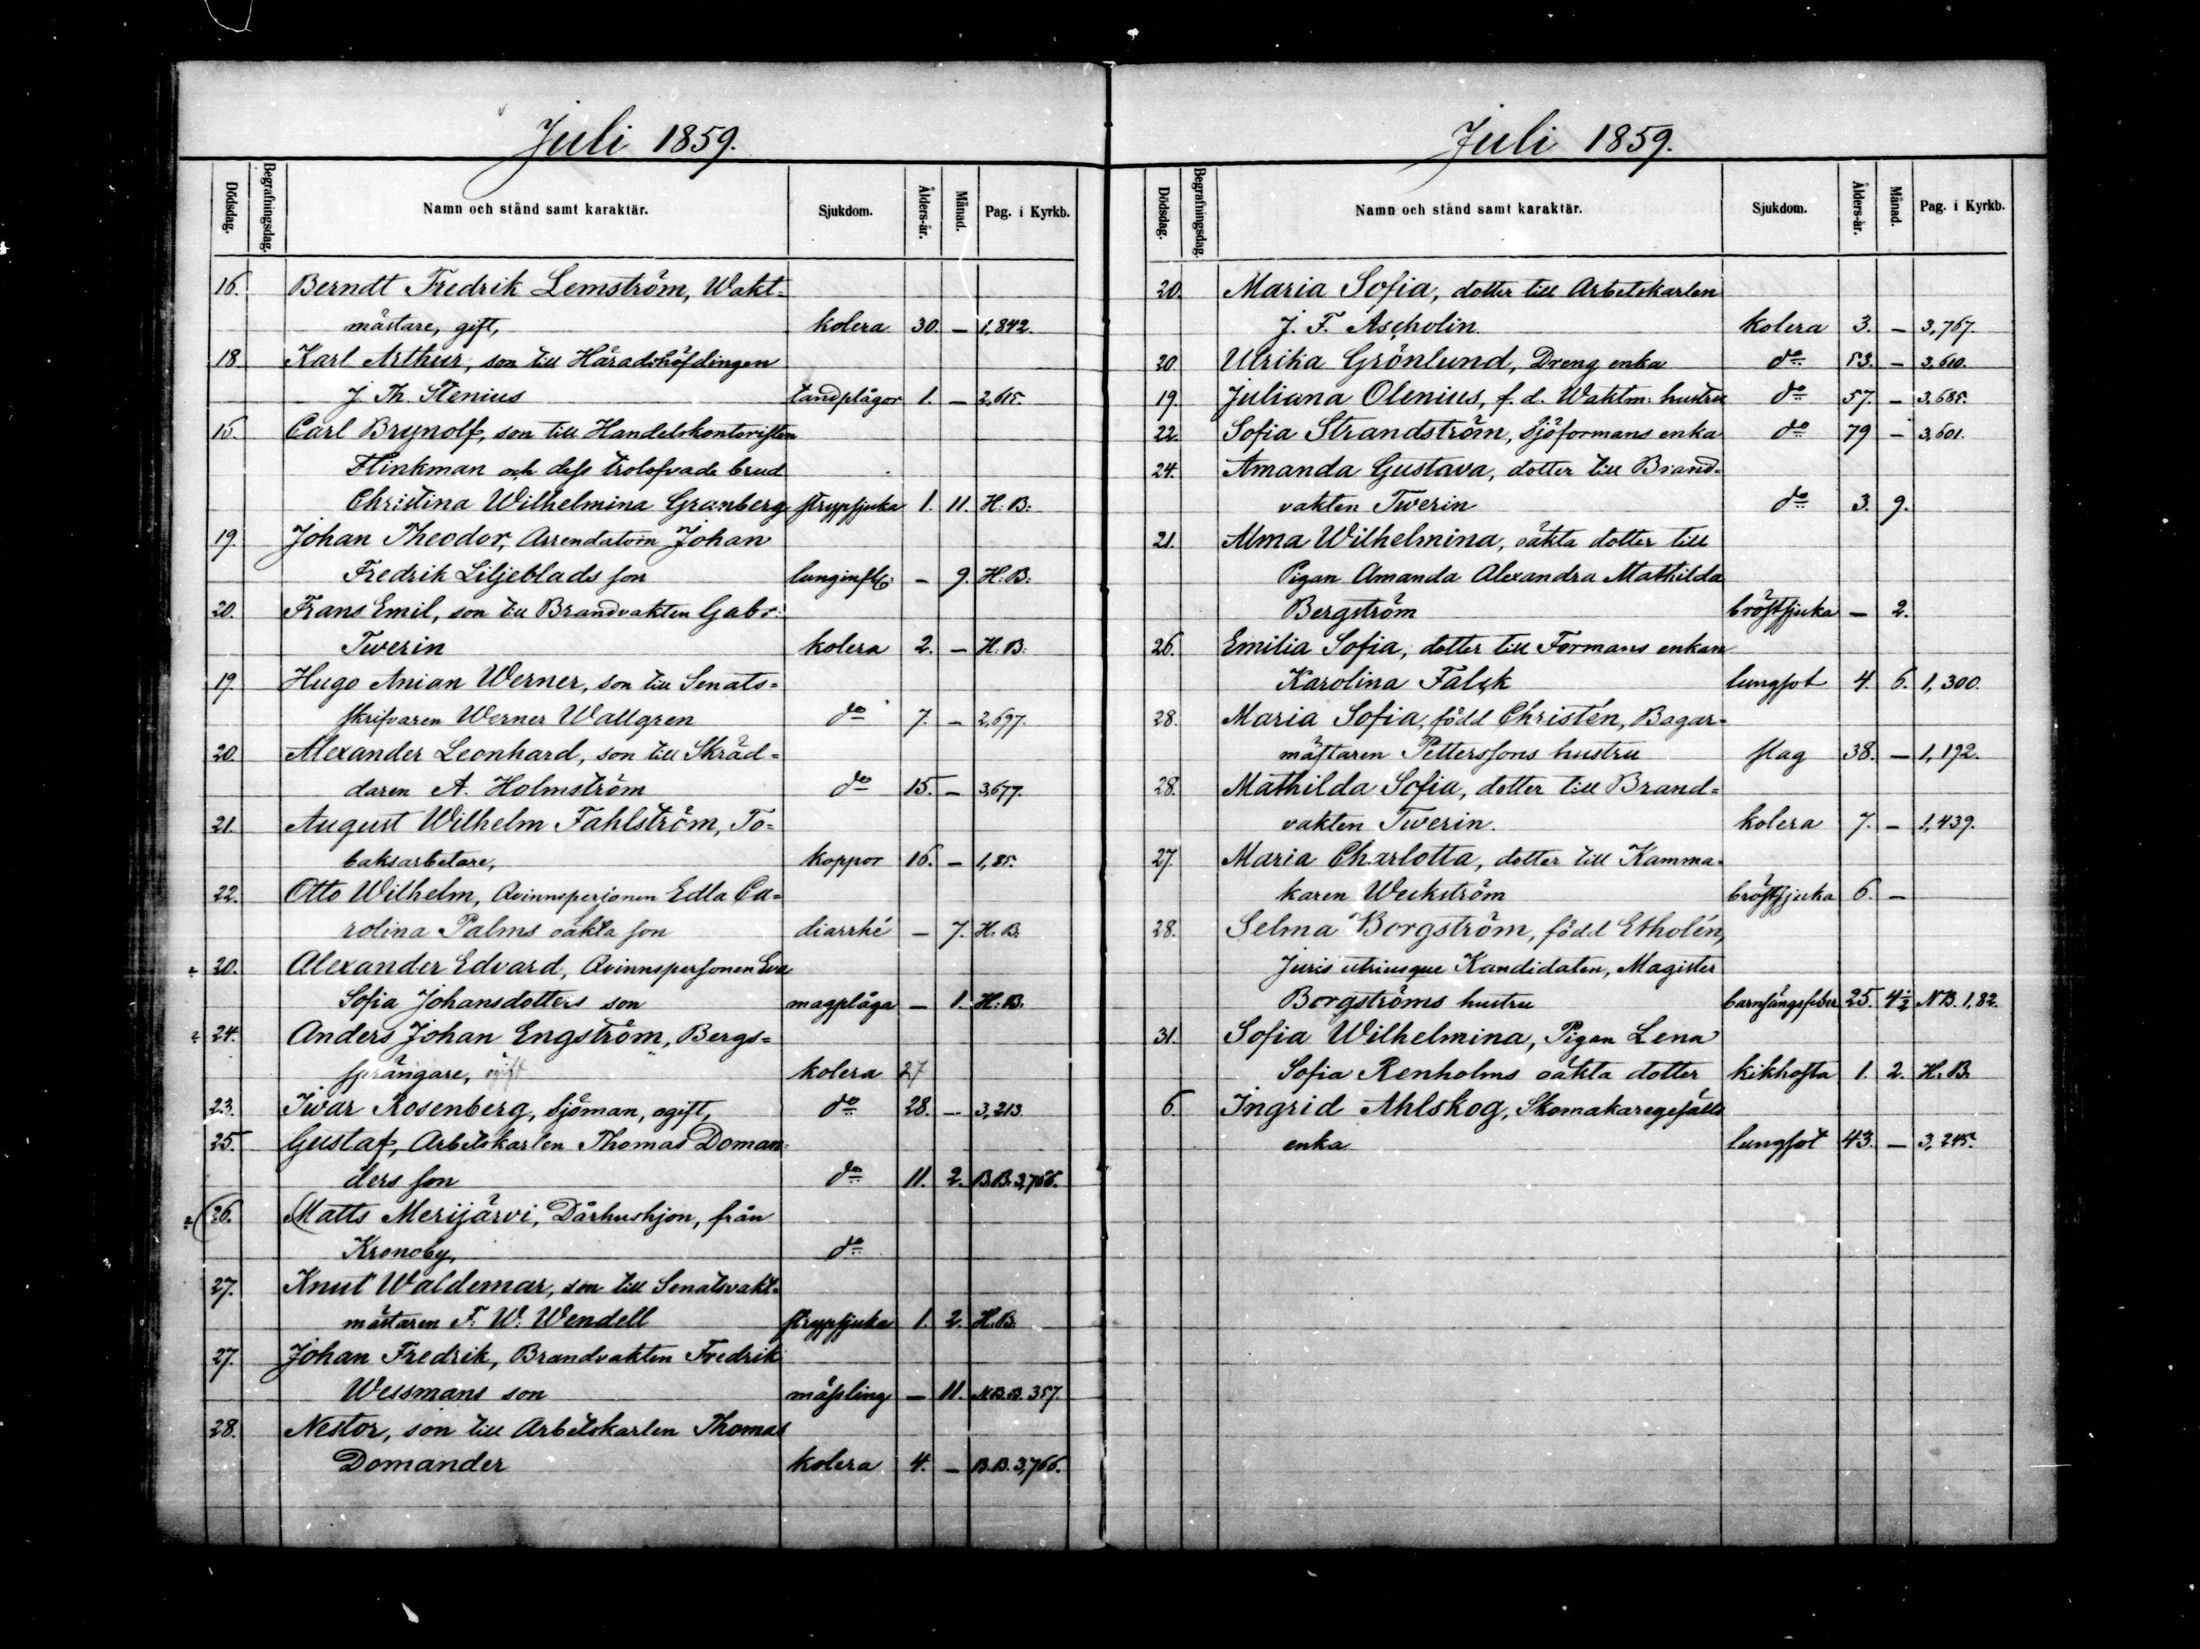 Juli 1859.
Dödsdag. Begrafningsdag. Namn och stånd samt karaktär. Sjukdom. Ålders-år. Månad. Pag. i Kyrkb.
16. Berndt Fredrik Lemström, Wakt-
mästare, gift, kolera 30. — 1,842.
18. Karl Arthur, son till Häradshöfdingen
J. Th. Stenius tandplågor 1. — 2,615.
15. Carl Brynolf, son till Handelskontoristen
Flinkman och dess trolofvade brud
Christina Wilhelmina Granberg strypsjuka 1. 11. H. B:
19. Johan Theodor, Arrendatorn Johan
Fredrik Liljeblads son lunginfl: — 9. H. B:
20. Frans Emil, son till Brandvakten Gabr:
Twerin kolera 2. — H. B:
19. Hugo Anian Werner, son till Senats-
skrifvaren Werner Wallgren do 7. — 2,697.
20. Alexander Leonhard, son till Skräd-
daren A. Holmström do 15. — 3,677.
21. August Wilhelm Fahlström, To-
baksarbetare, koppor 16. — 1,85.
22. Otto Wilhelm, Qvinnspersonen Edla Ca-
rolina Palms oäkta son diarrhé — 7. H. B.
20. Alexander Edvard, Qvinnspersonen Eva
Sofia Johansdotters son magplåga — 1. H. B.
24. Anders Johan Engström, Bergs-
sprängare, ogift kolera 27
23. Iwar Rosenberg, sjöman, ogift, do 28. — 3,213.
25. Gustaf, Arbetskarlen Thomas Doman-
ders son do 11. 2. B.B. 3,766.
26. Matts Merijärvi, Dårhushjon, från
Kronoby, do
27. Knut Waldemar, son till Senatsvakt-
mästaren F. W. Wendell strypsjuka 1. 2. H. B.
27. Johan Fredrik, Brandvakten Fredrik
Wessmans son mässling — 11. N.B.B. 357.
28. Nestor, son till Arbetskarlen Thomas
Domander kolera 4. — B.B. 3,766.
Juli 1859.
Dödsdag. Begrafningsdag. Namn och stånd samt karaktär. Sjukdom. Ålders-år. Månad. Pag. i Kyrkb.
20. Maria Sofia, dotter till Arbetskarlen
J. F. Ascholin kolera 3. — 3,767.
20. Ulrika Grönlund, Dreng enka do 53. — 3,610.
19. Juliana Olenius, f. d. Waktm: hustru do 57. — 3,685.
22. Sofia Strandström, Sjöformans enka do 79 — 3,601.
24. Amanda Gustava, dotter till Brand-
vakten Twerin do 3. 9.
21. Alma Wilhelmina, oäkta dotter till
Pigan Amanda Alexandra Mathilda
Bergström bröstsjuka — 2.
26. Emilia Sofia, dotter till Formans enkan
Karolina Falck lungsot 4. 6. 1,300.
28. Maria Sofia, född Christén, Bagar-
mästaren Petterssons hustru slag 38. — 1,192.
28. Mathilda Sofia, dotter till Brand-
vakten Twerin. kolera 7. — 1,439.
27. Maria Charlotta, dotter till Kamma-
karen Weckström bröstsjuka 6. —
28. Selma Borgström, född Etholén,
Juris utriusque Kandidaten, Magister
Borgströms hustru barnsängsfeber 25. 4½ N B. 1,82.
31. Sofia Wilhelmina, Pigan Lena
Sofia Renholms oäkta dotter kikhosta 1. 2. H. B.
6. Ingrid Ahlskog, Skomakaregesälls
enka lungsot 43. — 3,245.